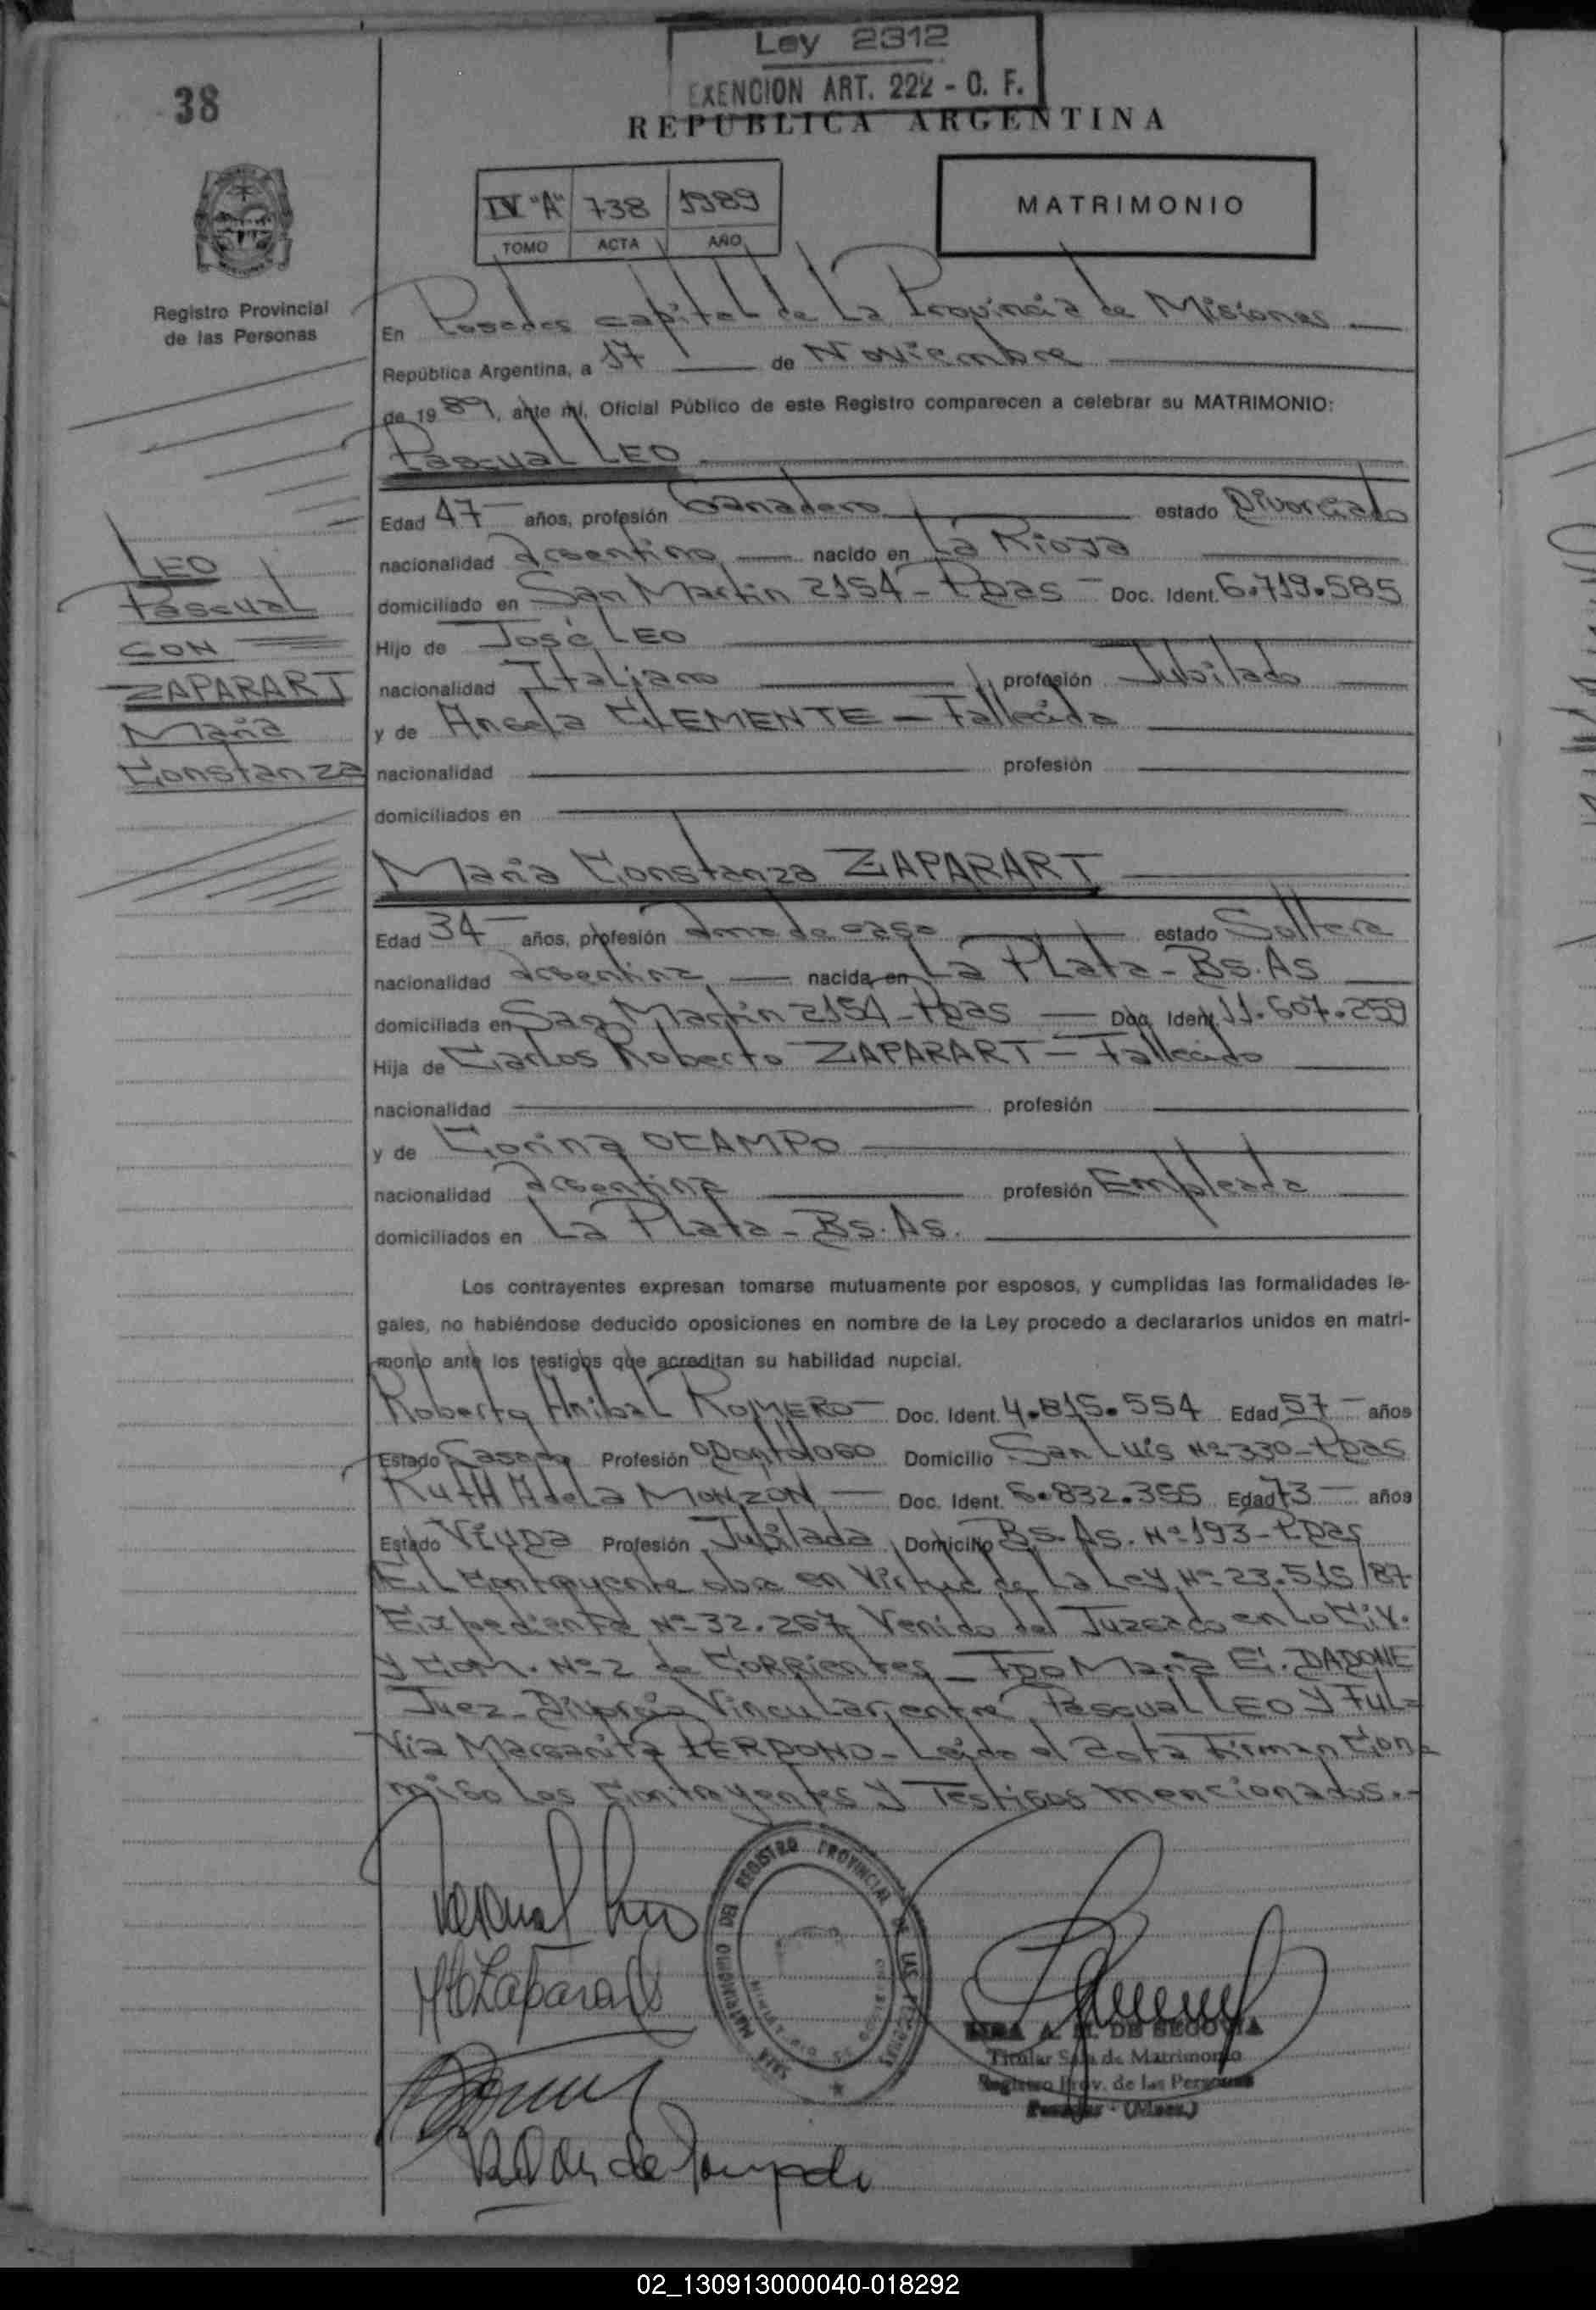 Ley 2312
EXENCION ART. 222 - O. F.
38
REPUBLICA ARGENTINA
IV "A" 738 1989
TOMO ACTA AÑO
MATRIMONIO
Registro Provincial
de las Personas
En Posadas capital de La Provincia de Misiones
República Argentina, a 17 de Noviembre
de 1989, ante mí, Oficial Público de este Registro comparecen a celebrar su MATRIMONIO:
Pascual LEO
Edad 47 años, profesión Ganadero estado Divorciado
nacionalidad argentino nacido en La Rioja
domiciliado en San Martin 2154 - Pdas - Doc. Ident. 6.719.585
Hijo de José LEO
nacionalidad Italiano profesión Jubilado
y de Angela CLEMENTE - Fallecida
nacionalidad profesión
domiciliados en
LEO
Pascual
CON
ZAPARART
Maria
Constanza
Maria Constanza ZAPARART
Edad 34 años, profesión ama de casa estado Soltera
nacionalidad argentina nacida en La Plata - Bs. As
domiciliada en San Martin 2154 - Pdas Doc. Ident. 11.607.259
Hija de Carlos Roberto ZAPARART - Fallecido
nacionalidad profesión
y de Corina OCAMPO
nacionalidad argentina profesión Empleada
domiciliados en La Plata - Bs. As.
Los contrayentes expresan tomarse mutuamente por esposos, y cumplidas las formalidades le-
gales, no habiéndose deducido oposiciones en nombre de la Ley procedo a declararlos unidos en matri-
monio ante los testigos que acreditan su habilidad nupcial.
Roberto Anibal ROMERO - Doc. Ident. 4.815.554 Edad 57 - años
Estado Casado Profesión Odontologo Domicilio San Luis Nº 330 - Pdas
Ruth Adela MONZON - Doc. Ident. 6.832.355 Edad 73 - años
Estado Viuda Profesión Jubilada Domicilio Bs. As. Nº 193 - Pdas
El Contrayente obra en Virtud de La Ley Nº 23.515/87
Expediente Nº 32.267 Venido del Juzgado en Lo Civ.
y Com. Nº 2 de Corrientes - Fdo Maria E. DADONE
Juez - Divorcio Vincular entre Pascual LEO y Ful-
via Margarita PERDOMO - Leida el acta Firman Con-
migo Los Contrayentes y Testigos mencionados.-
Pascual Leo
MCZaparart
SALA MATRIMONIO DEL REGISTRO PROVINCIAL DE LAS PERSONAS
A. M. DE SEGOVIA
Titular Sala de Matrimonio
Registro Prov. de las Personas
Posadas - (Mnes.)
02_130913000040-018292